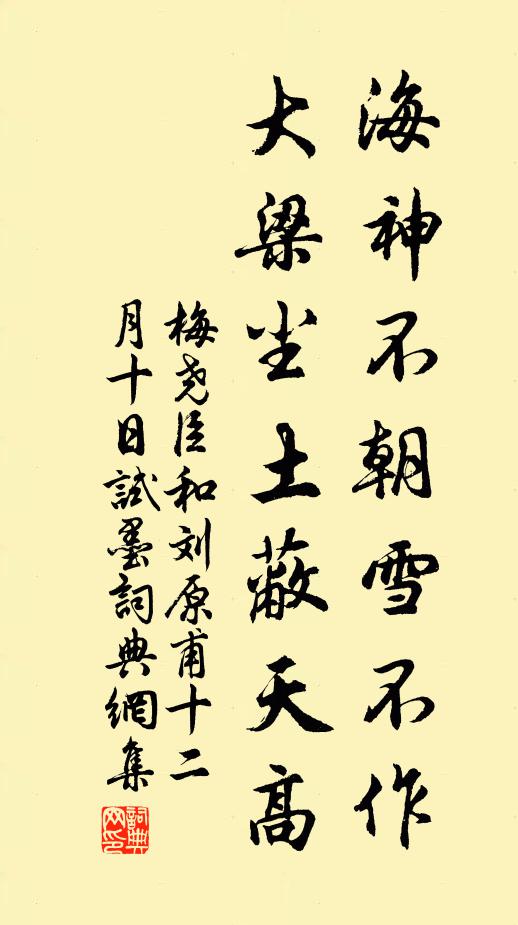 海神不朝雪不作
大梁尘土蔽天高
梅尧臣和刘原甫十二
月十日試墨詞典網集
詞典网印